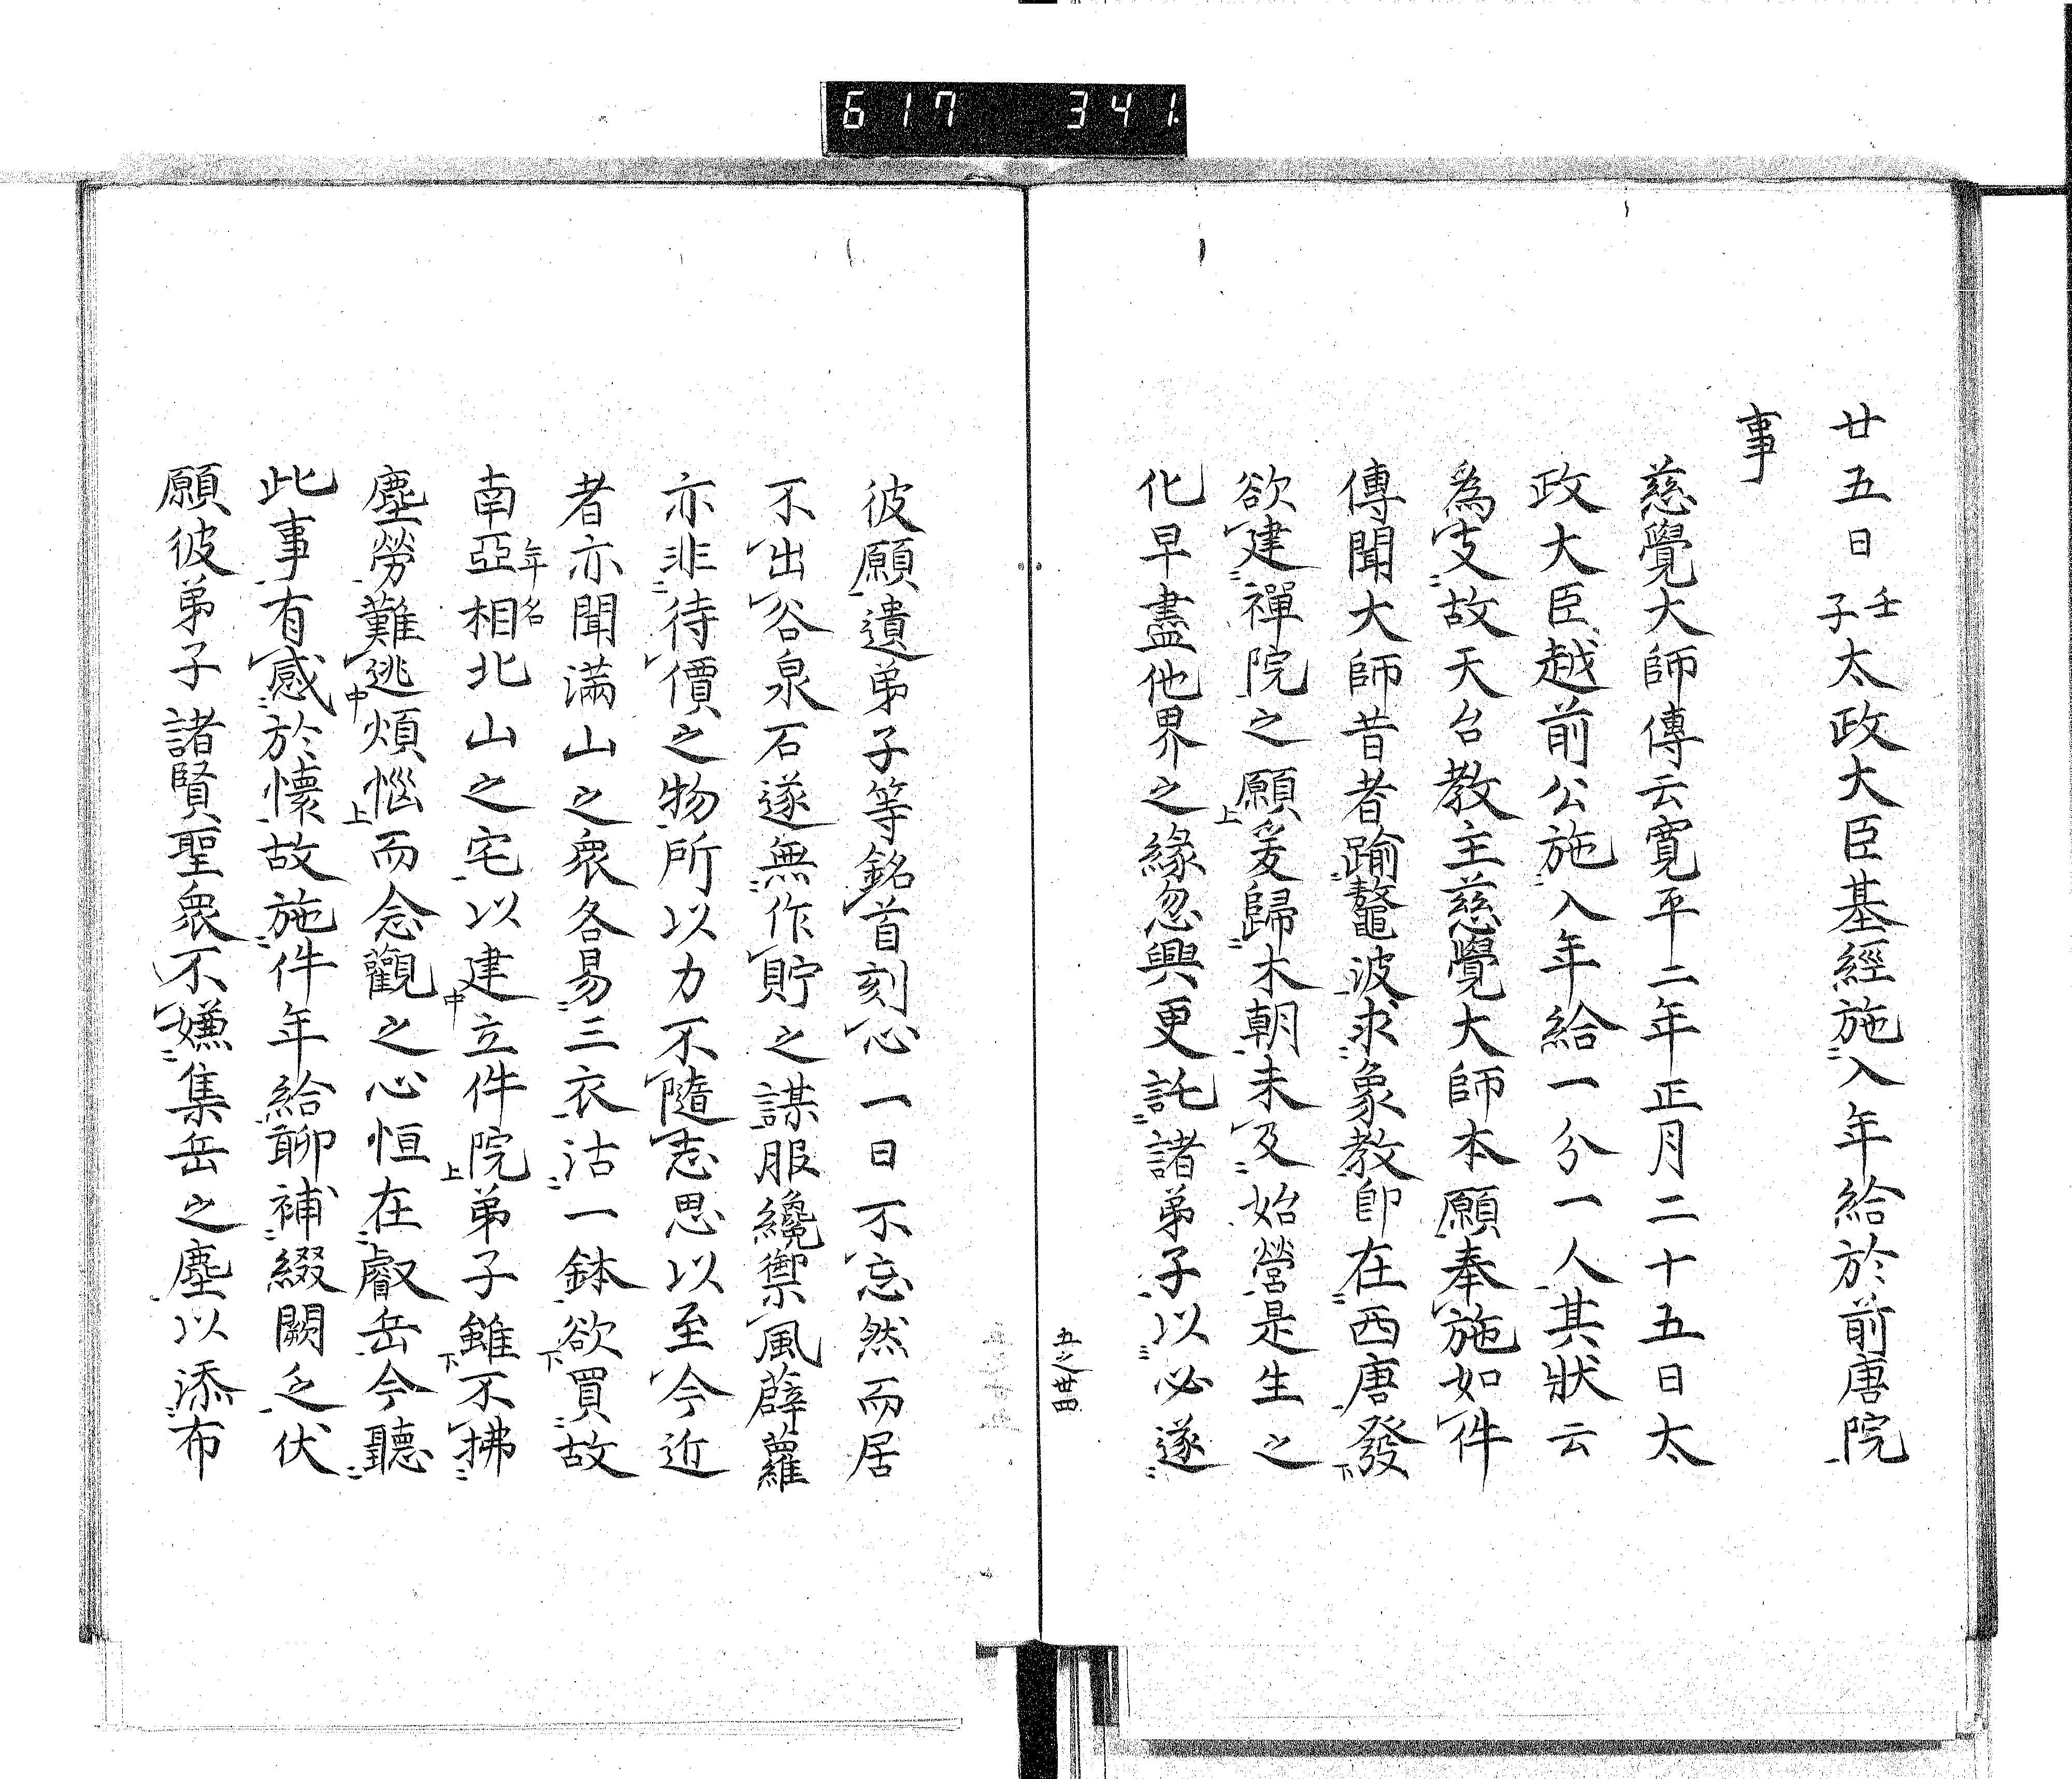 617 341
廿五日壬子太政大臣基經施入年給於前唐院
事
慈覺大師傳云寛平二年正月二十五日太
政大臣越前公施入年給一分一人其狀云
爲支故天台教主慈覺大師本願奉施如件
傳聞大師昔者踰鼇波求象教卽在西唐發
欲建禪院之願爰歸木朝未及始營是生之
化早盡他界之緣忽興更託諸弟子以必遂
五之世四
彼願遺弟子等銘首刻心一日不忘然而居
不出谷泉石遂無作貯之謀服纔禦風薜蘿
亦非待價之物所以力不隨志思以至今近
者亦聞滿山之衆各易三衣沽一鉢欲買故
南亞相北山之宅以建立件院弟子雖不拂
年名
塵勞難逃煩惱而念觀之心恒在叡岳今聽
此事有感於懷故施件年給聊補綴闕乏伏
願彼弟子諸賢聖衆不嫌集岳之塵以添布